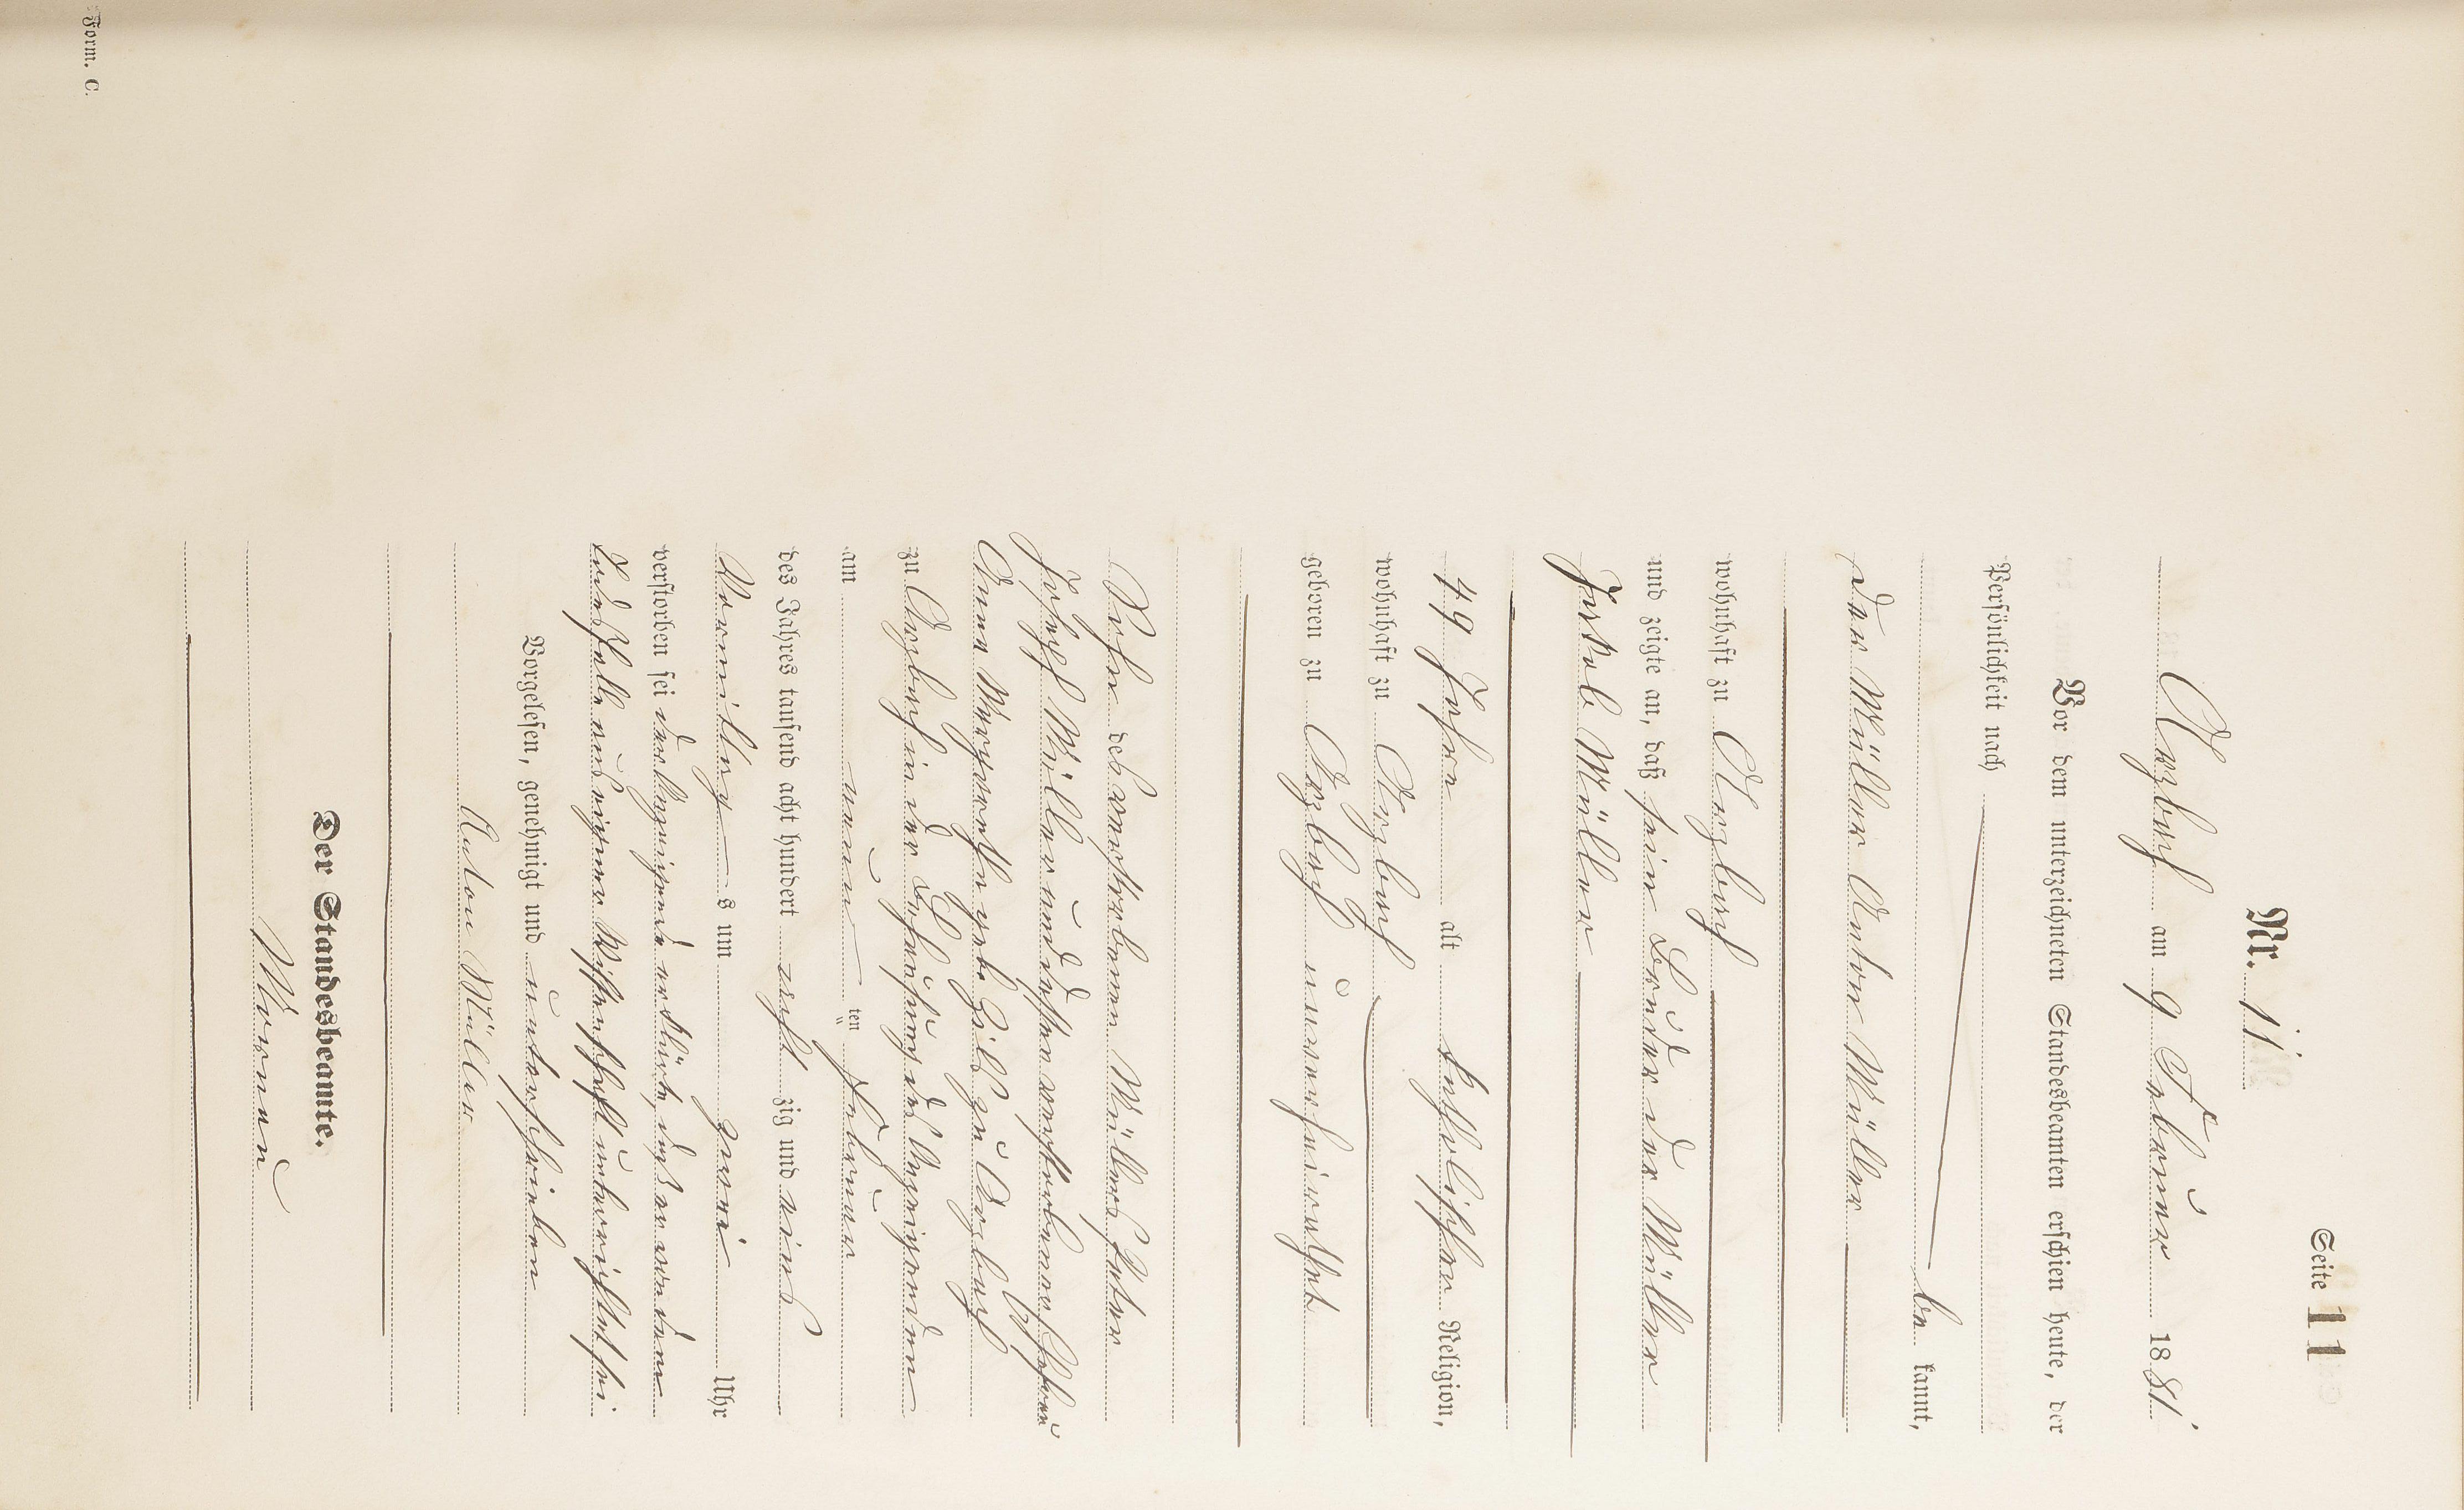 Seite 11
Nr. 11
Arzbach am 9 Februar 1881
Vor dem unterzeichneten Standesbeamten erschien heute, der
Persönlichkeit nach
be kannt,
der Müller Anton Müller
wohnhaft zu Arzbach
und zeigte an, daß sein Bruder der Müller
Jakob Müller
49 Jahre alt katholischer Religion,
wohnhaft zu Arzbach
geboren zu Arzbach unverheirathet
Sohn des verstorbenen Müllers Peter
Joseph Müller und dessen verstorbenen Ehefrau
Anna Margaretha geb. Hilf zu Arzbach
zu Arzbach in der Behausung des Anzeigenden
am neun ten Februar
des Jahres tausend acht hundert acht zig und eins
Vormittag s um zwei Uhr
verstorben sei der Anzeigende erklärte, daß er von dem
Todesfalle aus eigener Wissenschaft unterrichtet sei
Vorgelesen, genehmigt und unterschrieben
Anton Müller
Der Standesbeamte.
Form. C.